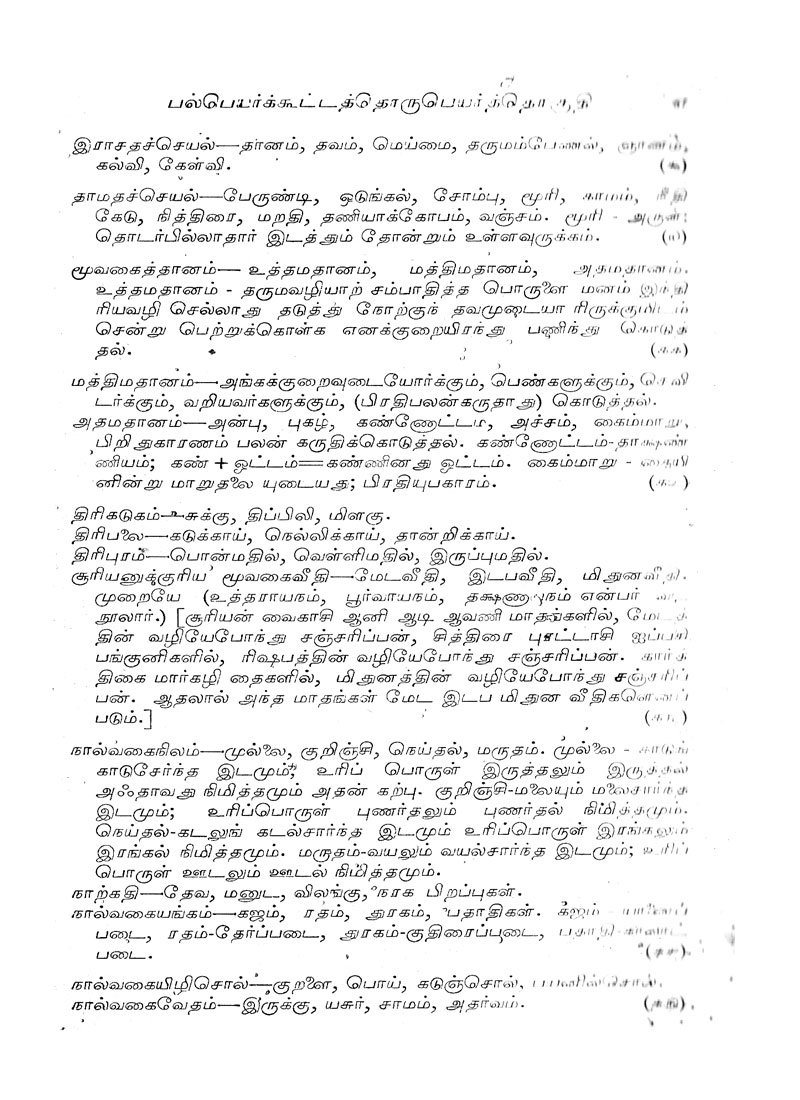 பல்பெயர்க்கூட்டத்தொருபெயர்த்தொகுதி
இராசதச்செயல்—தானம், தவம், மெய்மை, தருமம்பேணல், ஞானம்,
கல்வி, கேள்வி. (௯)
தாமதச்செயல்—பேருண்டி, ஒடுங்கல், சோம்பு, மூரி, காமம், நீதி
கேடு, நித்திரை, மறதி, தணியாக்கோபம், வஞ்சம். மூரி - அருள்;
தொடர்பில்லாதார் இடத்தும் தோன்றும் உள்ளவுருக்கம். (௰)
மூவகைத்தானம்— உத்தமதானம், மத்திமதானம், அதமதானம்.
உத்தமதானம் - தருமவழியாற் சம்பாதித்த பொருளை மனம் இந்தி
ரியவழி செல்லாது தடுத்து நோற்குந் தவமுடையா ரிருக்குமிடம்
சென்று பெற்றுக்கொள்க எனக்குறையிரந்து பணிந்து கொடுத்
தல். (௧௧)
மத்திமதானம்—அங்கக்குறைவுடையோர்க்கும், பெண்களுக்கும்,
டர்க்கும், வறியவர்களுக்கும், (பிரதிபலன்கருதாது) கொடுத்தல்.
அதமதானம்—அன்பு, புகழ், கண்ணோட்டம், அச்சம், கைம்மாறு,
பிறிதுகாரணம் பலன் கருதிக்கொடுத்தல். கண்ணோட்டம்-தாக்ஷண்
ணியம்; கண் + ஓட்டம்=கண்ணினது ஓட்டம். கைம்மாறு -
னின்று மாறுதலை யுடையது; பிரதியுபகாரம். (௧௨)
திரிகடுகம்—சுக்கு, திப்பிலி, மிளகு.
திரிபலை—கடுக்காய், நெல்லிக்காய், தான்றிக்காய்.
திரிபுரம்—பொன்மதில், வெள்ளிமதில், இருப்புமதில்.
சூரியனுக்குரிய மூவகைவீதி—மேடவீதி, இடபவீதி, மிதுனவீதி.
முறையே (உத்தராயநம், பூர்வாயநம், தக்ஷணாயநம் என்பர்
நூலார்.) [சூரியன் வைகாசி ஆனி ஆடி ஆவணி மாதங்களில், மேடத்
தின் வழியேபோந்து சஞ்சரிப்பன், சித்திரை புரட்டாசி ஐப்பசி
பங்குனிகளில், ரிஷபத்தின் வழியேபோந்து சஞ்சரிப்பன். கார்த்
திகை மார்கழி தைகளில், மிதுனத்தின் வழியேபோந்து சஞ்சரிப்
பன். ஆதலால் அந்த மாதங்கள் மேட இடப மிதுன வீதிகளெனப்
படும்.] (௧௩)
நால்வகைநிலம்—முல்லை, குறிஞ்சி, நெய்தல், மருதம். முல்லை - காடுங்
காடுசேர்ந்த இடமும்; உரிப் பொருள் இருத்தலும் இருத்தல்
அஃதாவது நிமித்தமும் அதன் கற்பு. குறிஞ்சி-மலையும் மலைசார்ந்த
இடமும்; உரிப்பொருள் புணர்தலும் புணர்தல் நிமித்தமும்.
நெய்தல்-கடலுங் கடல்சார்ந்த இடமும் உரிப்பொருள் இரங்கலும்
இரங்கல் நிமித்தமும். மருதம்-வயலும் வயல்சார்ந்த இடமும்; உரிப்
பொருள் ஊடலும் ஊடல் நிமித்தமும்.
நாற்கதி—தேவ, மனுட, விலங்கு, நரக பிறப்புகள்.
நால்வகையங்கம்—கஜம், ரதம், துரகம், பதாதிகள். கஜம் - யானைப்
படை, ரதம்-தேர்ப்படை, துரகம்-குதிரைப்படை, பதாதி-காலாட்
படை. (௧௪)
நால்வகையிழிசொல்—குறளை, பொய், கடுஞ்சொல், பயனில்சொல்.
நால்வகைவேதம்—இருக்கு, யசுர், சாமம், அதர்வம். (௧௫)